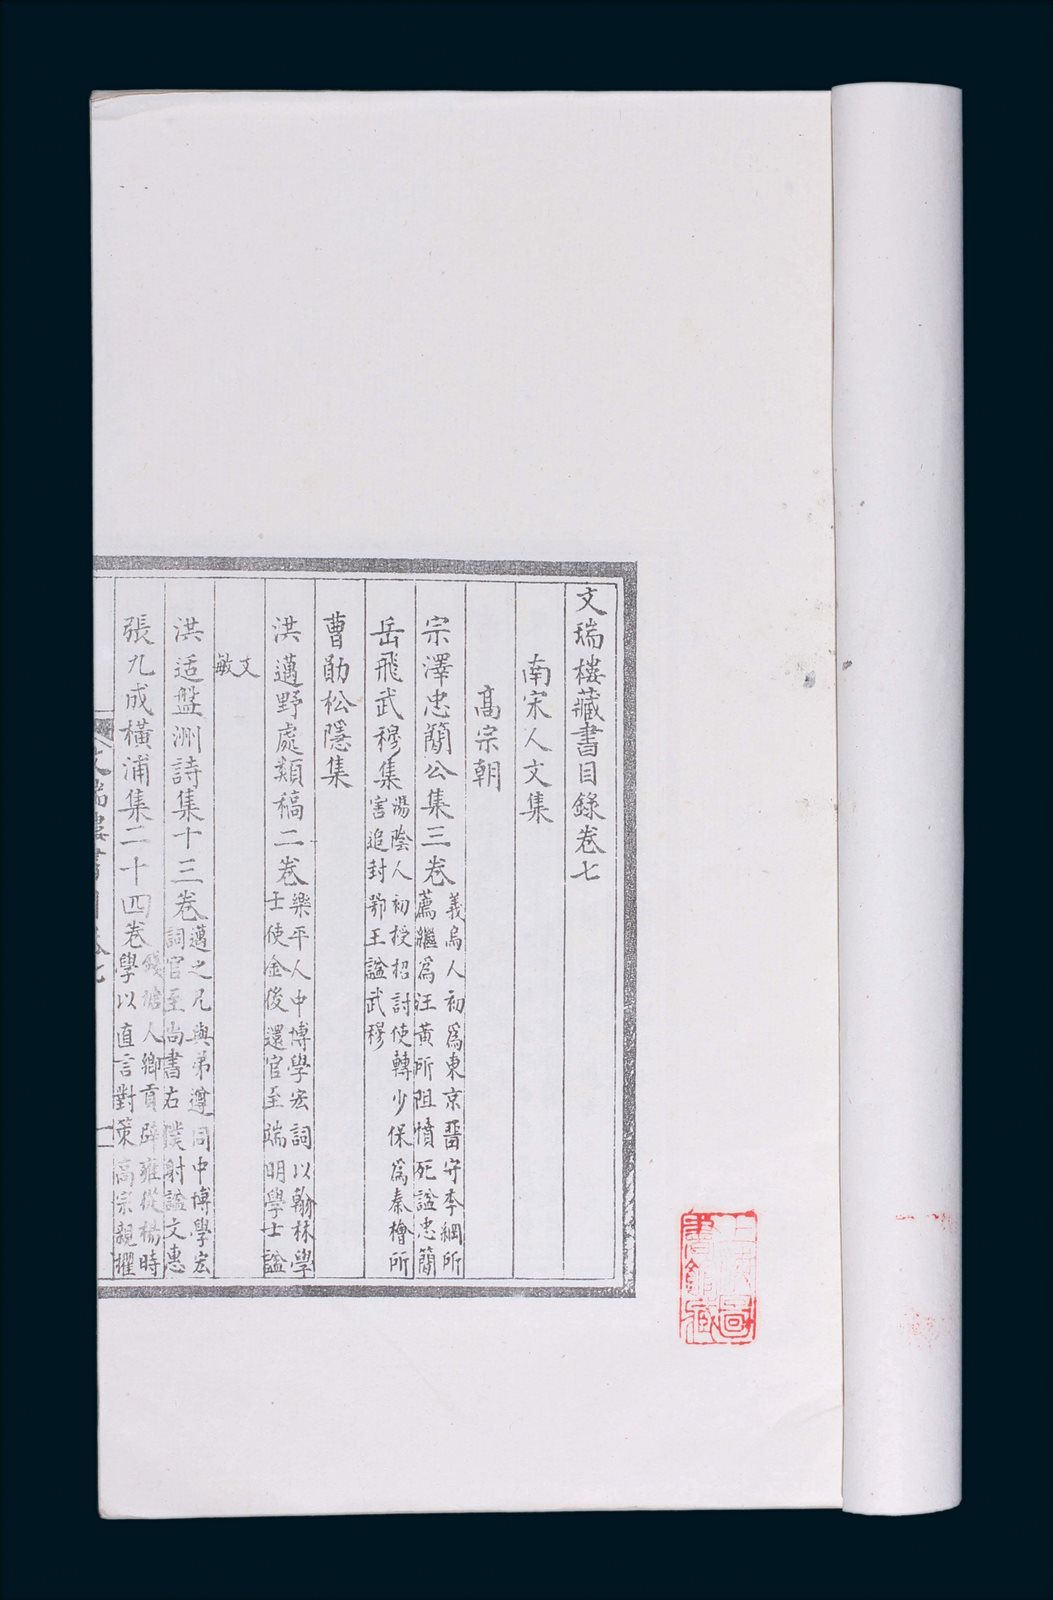 文瑞樓藏書目錄卷七
南宋人文集
高宗朝
宗澤忠簡公集三卷
義烏人初爲東京畱守李綱所
薦繼爲汪黃所阻憤死諡忠簡
岳飛武穆集
湯陰人初授招討使轉少保爲秦檜所
害追封鄂王諡武穆
曹勛松隱集
洪邁野處類稿二卷
樂平人中博學宏詞以翰林學
士使金後還官至端明學士諡
文
敏
洪适盤洲詩集十三卷
邁之兄與弟遵同中博學宏
詞官至尚書右僕射諡文惠
張九成橫浦集二十四卷
錢塘人鄉貢辟雍從楊時
學以直言對策高宗親擢
文瑞樓書目卷七
一
上海圖
書館藏